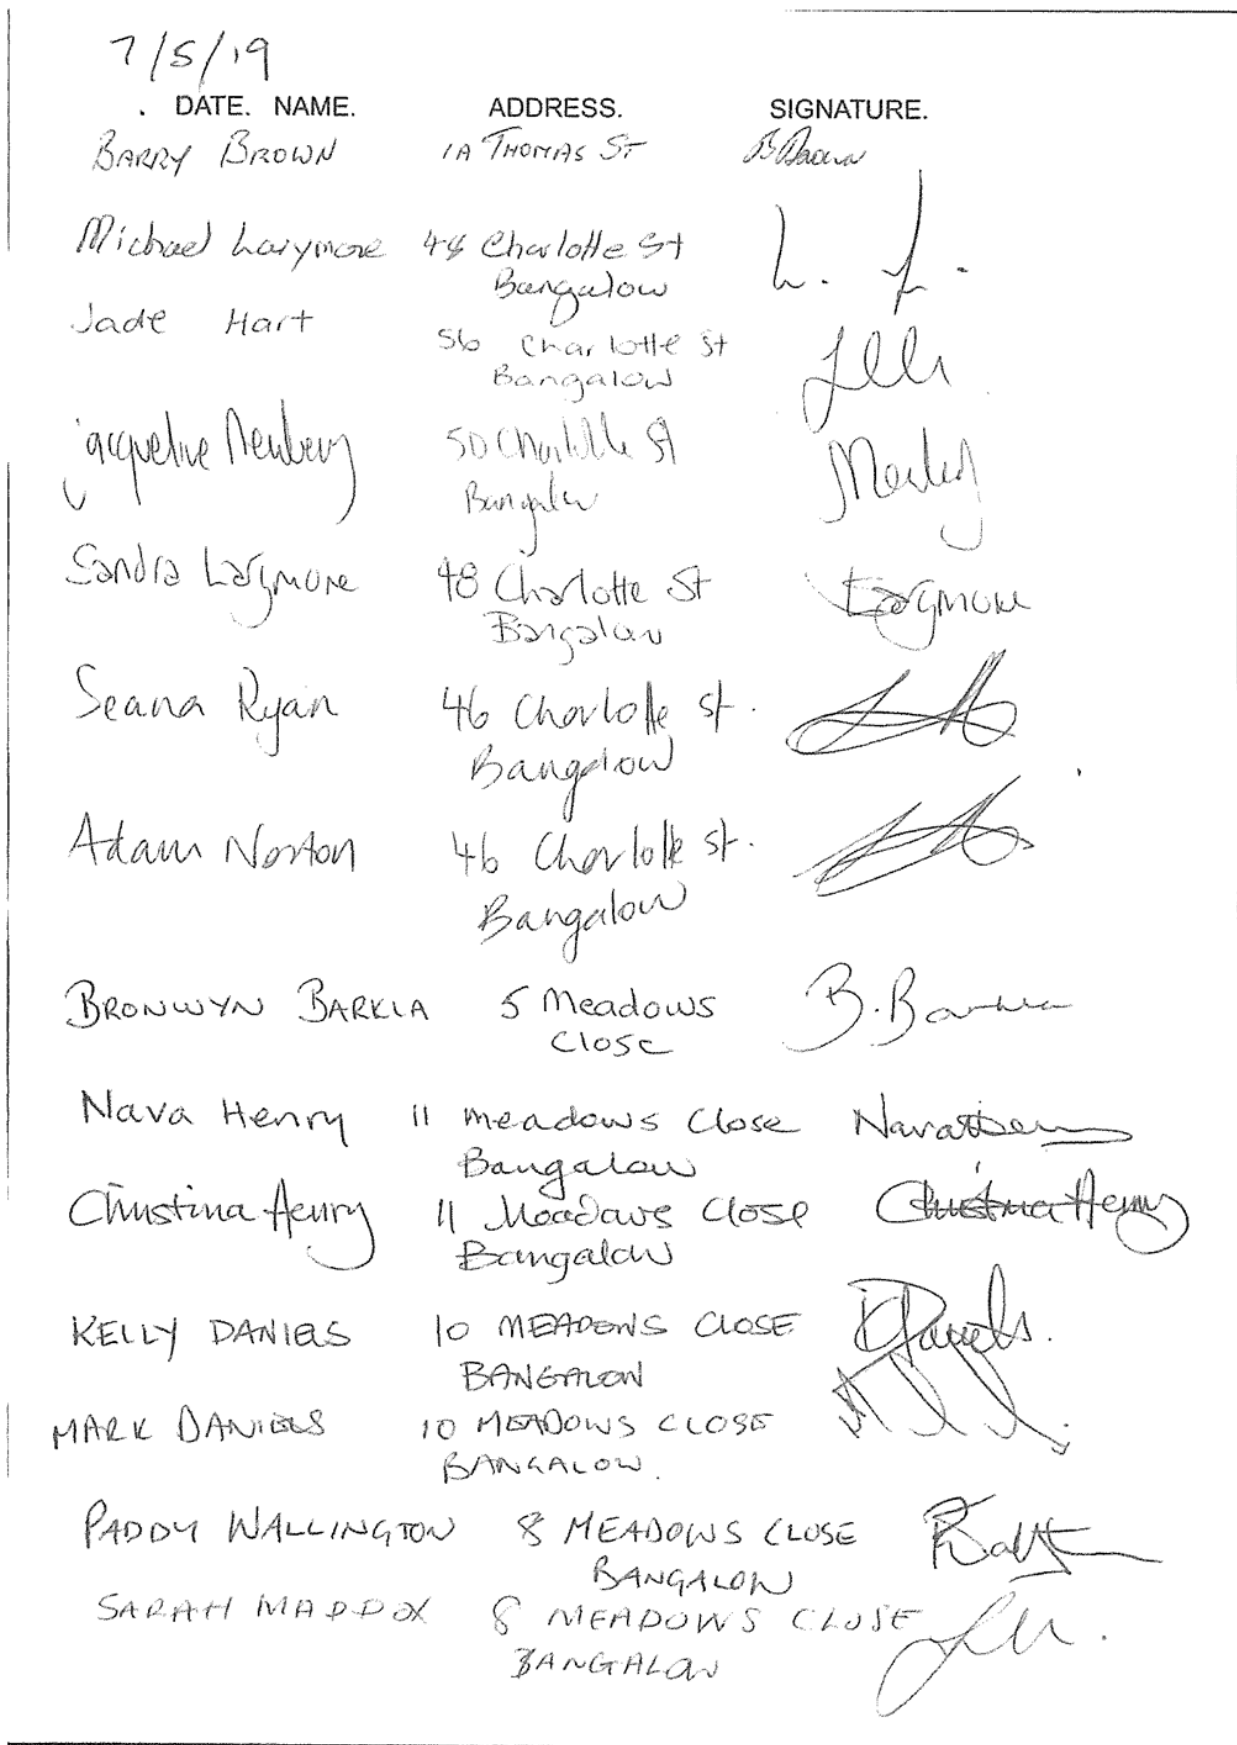 7/5/19
. DATE. NAME. ADDRESS. SIGNATURE.
BARRY BROWN 1A THOMAS ST B Brown
Michael Larymore 48 Charlotte St
Bangalow
Jade Hart 56 Charlotte St
Bangalow
Jacqueline Newbery 50 Charlotte St
Bangalow
Sandra Larymore 48 Charlotte St Larymore
Bangalow
Seana Ryan 46 Charlotte St.
Bangalow
Adam Norton 46 Charlotte St.
Bangalow
BRONWYN BARKLA 5 Meadows B. Barkla
Close
Nava Henry 11 Meadows Close Nava Henry
Bangalow
Christina Henry 11 Meadows Close Christina Henry
Bangalow
KELLY DANIELS 10 MEADOWS CLOSE
BANGALOW
MARK DANIELS 10 MEADOWS CLOSE
BANGALOW.
PADDY WALLINGTON 8 MEADOWS CLOSE
BANGALOW
SARAH MADDOX 8 MEADOWS CLOSE
BANGALOW